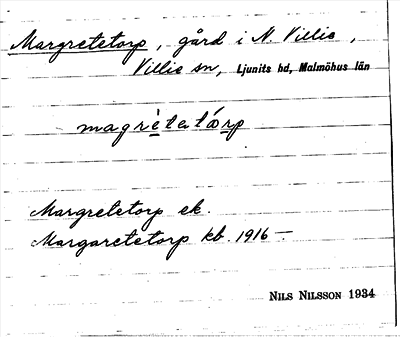 Margretetorp, gård i N. Villie,
Villie sn, Ljunits hd, Malmöhus län
magrètatårp
Margretetorp ek.
Margaretetorp kb. 1916–
NILS NILSSON 1934